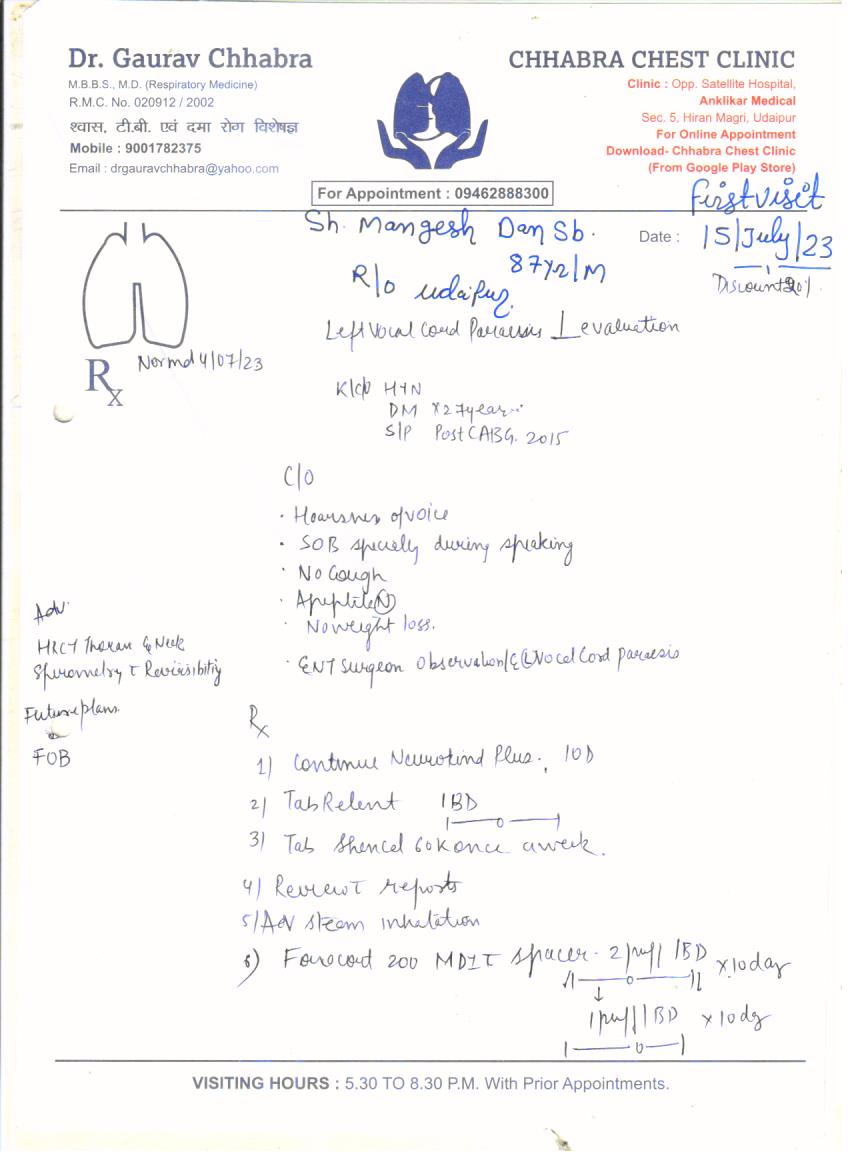 Dr. Gaurav Chhabra
M.B.B.S., M.D. (Respiratory Medicine)
R.M.C. No. 020912 / 2002
श्वास, टी.बी. एवं दमा रोग विशेषज्ञ
Mobile : 9001782375
Email : drgauravchhabra@yahoo.com
CHHABRA CHEST CLINIC
Clinic : Opp. Satellite Hospital,
Anklikar Medical
Sec. 5, Hiran Magri, Udaipur
For Online Appointment
Download- Chhabra Chest Clinic
(From Google Play Store)
For Appointment : 09462888300
First visit
Sh. Mangesh Dan Sb.
Date : 15/July/23
87yr/M
R/o Udaipur
Discount 20%
Left Vocal Cord Paraesis evaluation
Normal 4/07/23
Rx
K/c/o HTN
DM x 27years
S/P Post CABG. 2015
C/O
· Hoarsnes of voice
· SOB specially during speaking
· No Cough
· Apeptite (N)
· No weight loss.
· ENT Surgeon Observation (L) Vocal Cord Paraesis
Adv.
HRCT Thorax & Neck
Spirometry c Reversibility
Future plans.
FOB
Rx
1) Continue Neurokind Plus. 1OD
2) Tab Relent 1BD
1 — 0 — 1
3) Tab Shencal 60K once a week.
4) Review c reports
5) Adv steam inhalation
6) Foracort 200 MDI c spacer - 2 puff BD x 10 day
11 — 0 — 11
↓
1 puff BD x 10 dy
1 — 0 — 1
VISITING HOURS : 5.30 TO 8.30 P.M. With Prior Appointments.